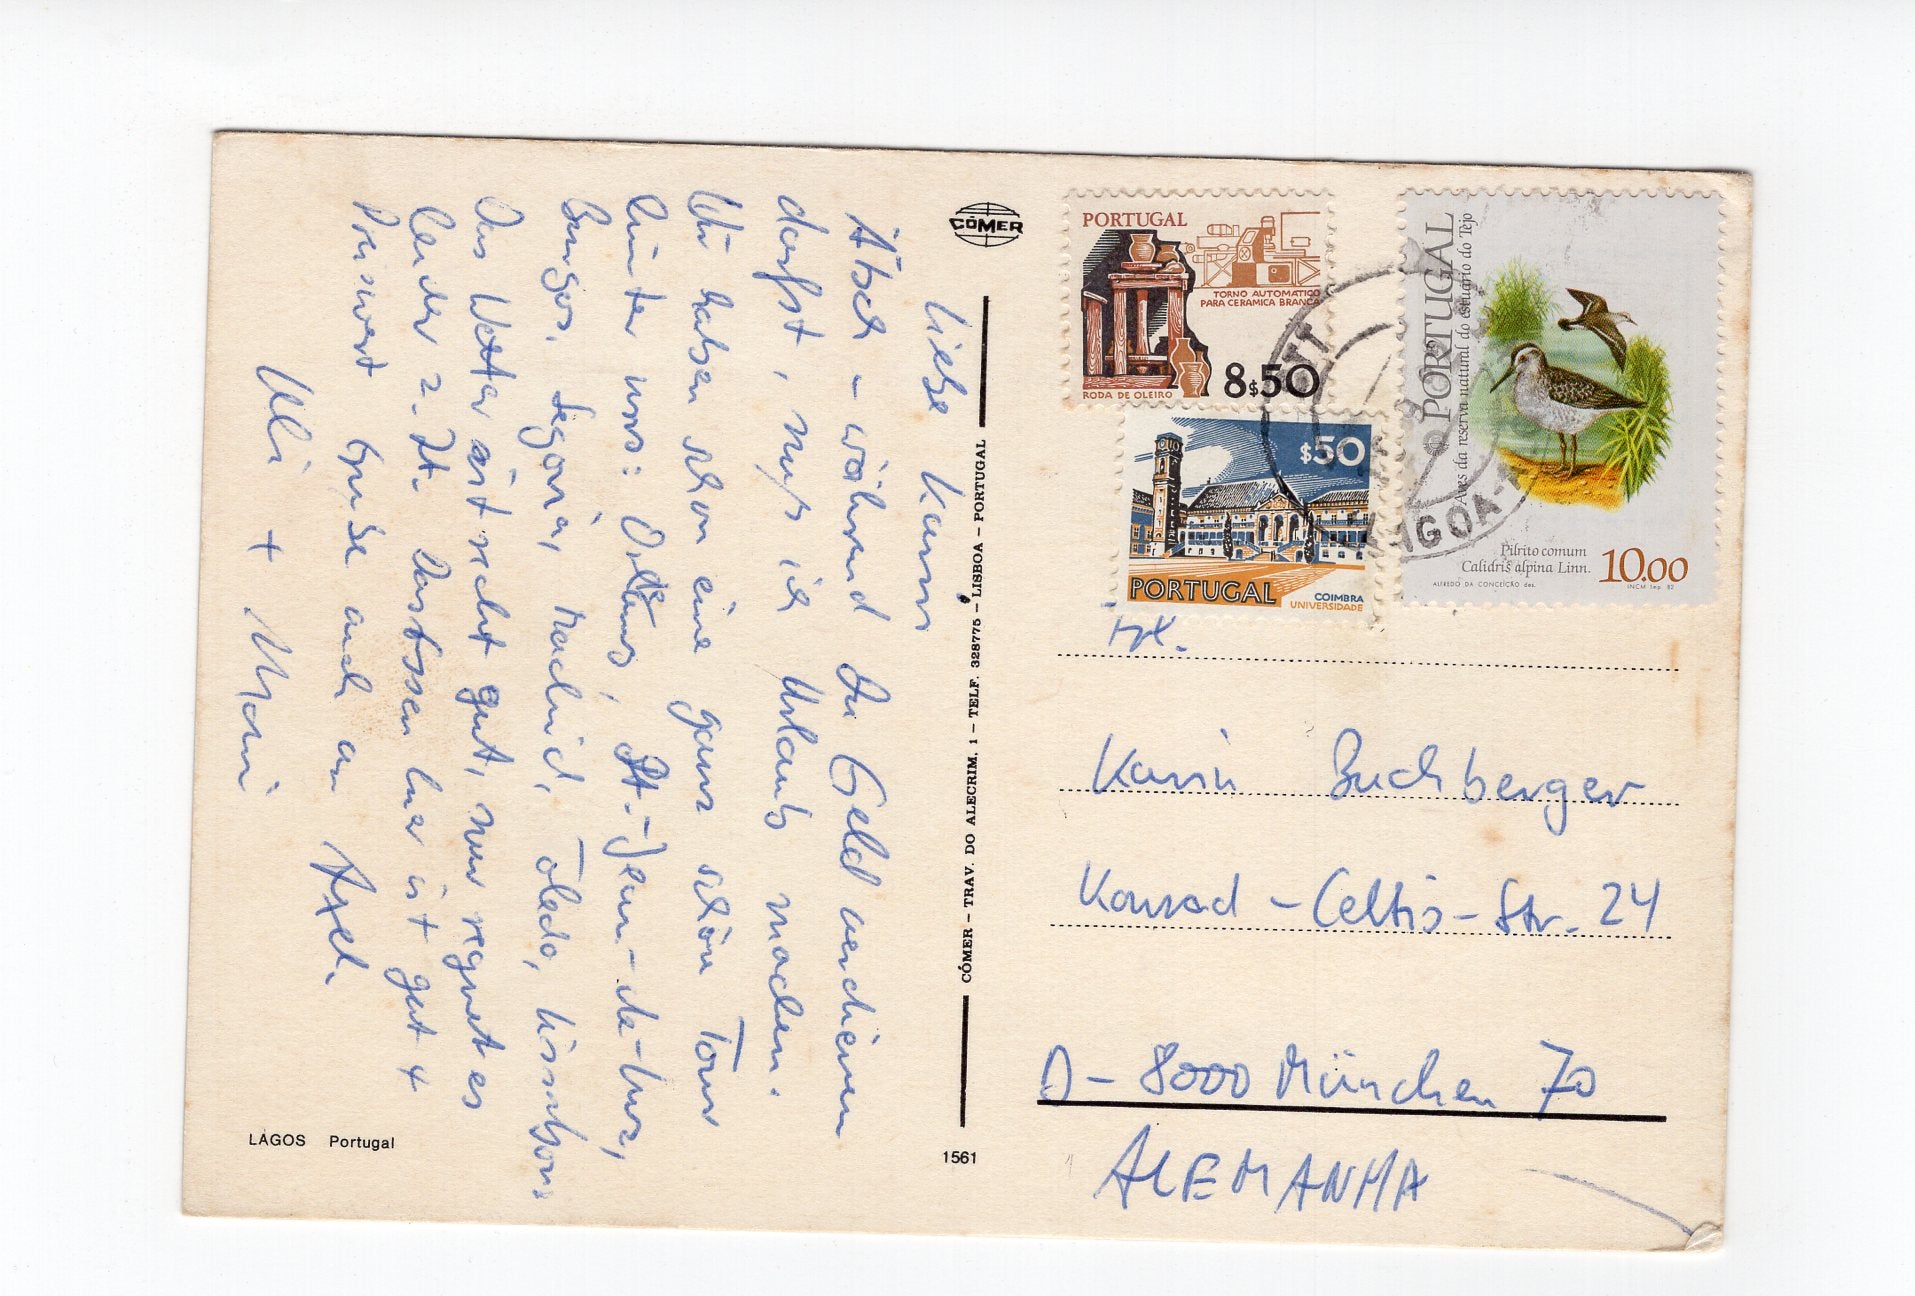 Liebe Karin
Ätsch – während Du Geld verdienen
darfst, muß ich Urlaub machen.
Wir haben schon eine ganz schön Tour
hinter uns: Orléans, St.-Jean-de-Luz,
Burgos, Segovia, Madrid, Toledo, Lissabon.
Das Wetter ist recht gut, nur regnet es
leider z. Zt. Das Essen hier ist gut +
Preiswert Grüße auch an Axel.
Uli + Moni
LAGOS Portugal
CÓMER
CÓMER – TRAV. DO ALECRIM, 1 – TELF. 328775 – LISBOA – PORTUGAL
1561
PORTUGAL
TORNO AUTOMATICO
PARA CERAMICA BRANCA
RODA DE OLEIRO
8$50
$50
PORTUGAL
COIMBRA
UNIVERSIDADE
PORTUGAL
Aves da reserva natural do estuário do Tejo
Pilrito comum
Calidris alpina Linn.
10.00
ALFREDO DA CONCEIÇÃO des.
INCM Imp. 82
CTT
LAGOA
Frl.
Karin Buchberger
Konrad-Celtis-Str. 24
D-8000 München 70
ALEMANHA